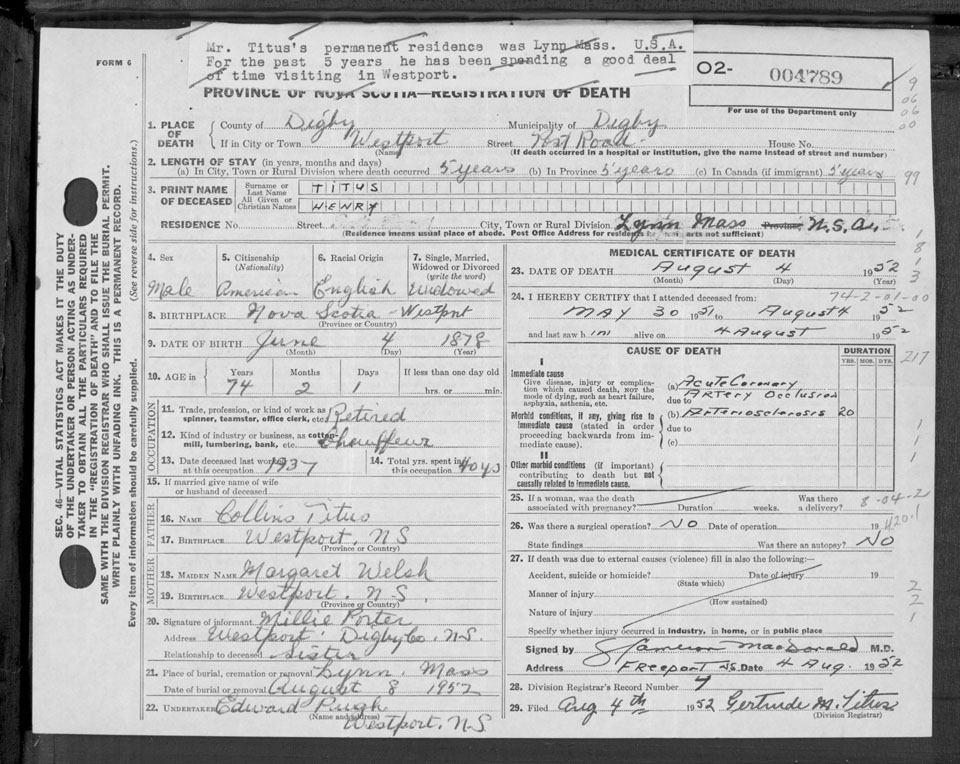 Mr. Titus's permanent residence was Lynn Mass. U.S.A.
For the past 5 years he has been spending a good deal
of time visiting in Westport.
FORM 6
O2- 004789
For use of the Department only
PROVINCE OF NOVA SCOTIA—REGISTRATION OF DEATH
1. PLACE OF DEATH
County of Digby Municipality of Digby
If in City or Town Westport Street Post Road House No.
(Name) (If death occurred in a hospital or institution, give the name instead of street and number)
2. LENGTH OF STAY (in years, months and days)
(a) In City, Town or Rural Division where death occurred 5 years (b) In Province 5 years (c) In Canada (if immigrant) 5 years
3. PRINT NAME OF DECEASED
Surname or Last Name TITUS
All Given or Christian Names HENRY
RESIDENCE No. Street City, Town or Rural Division Lynn Mass Province U.S.A.
(Residence means usual place of abode. Post Office Address for residents of rural parts not sufficient)
4. Sex
Male
5. Citizenship
(Nationality)
American
6. Racial Origin
English
7. Single, Married, Widowed or Divorced
(write the word)
Widowed
8. BIRTHPLACE Nova Scotia - Westport
(Province or Country)
9. DATE OF BIRTH June 4 1878
(Month) (Day) (Year)
10. AGE in Years Months Days If less than one day old
74 2 1 hrs. or min.
OCCUPATION
11. Trade, profession, or kind of work as spinner, teamster, office clerk, etc. Retired
12. Kind of industry or business, as cotton-mill, lumbering, bank, etc. Chauffeur
13. Date deceased last worked at this occupation 1937
14. Total yrs. spent in this occupation 40 yrs
15. If married give name of wife or husband of deceased
FATHER
16. NAME Collins Titus
17. BIRTHPLACE Westport, NS
(Province or Country)
MOTHER
18. MAIDEN NAME Margaret Welsh
19. BIRTHPLACE Westport, N-S,
(Province or Country)
20. Signature of informant Millie Porter
Address Westport Digby Co. N-S.
Relationship to deceased Sister
21. Place of burial, cremation or removal Lynn. Mass
Date of burial or removal August 8 1952
22. UNDERTAKER Edward Pugh
(Name and address)
Westport, N-S
MEDICAL CERTIFICATE OF DEATH
23. DATE OF DEATH August 4 1952
(Month) (Day) (Year)
24. I HEREBY CERTIFY that I attended deceased from: 74-2-01-00
MAY 30 1951 to August 4 1952
and last saw him alive on 4 August 1952
CAUSE OF DEATH
DURATION
YRS. MOS. DYS.
I
Immediate cause
Give disease, injury or complication which caused death, NOT the mode of dying, such as heart failure, asphyxia, asthenia, etc.
(a) Acute Coronary
due to Artery Occlusion
Morbid conditions, if any, giving rise to immediate cause (stated in order proceeding backwards from immediate cause).
(b) Arteriosclerosis 20
due to
(c)
II
Other morbid conditions (if important) contributing to death but not causally related to immediate cause.
25. If a woman, was the death associated with pregnancy? Duration weeks. Was there a delivery? 8-04-2
26. Was there a surgical operation? NO Date of operation 19 420.1
State findings Was there an autopsy? NO
27. If death was due to external causes (violence) fill in also the following:—
Accident, suicide or homicide? Date of injury 19
(State which)
Manner of injury
(How sustained)
Nature of injury
Specify whether injury occurred in industry, in home, or in public place
Signed by Cameron MacDonald M.D.
Address Freeport NS. Date 4 Aug. 1952
28. Division Registrar's Record Number 4
29. Filed Aug 4th 1952 Gertrude M. Titus
(Division Registrar)
SEC. 46—VITAL STATISTICS ACT MAKES IT THE DUTY
OF THE UNDERTAKER OR PERSON ACTING AS UNDER-
TAKER TO OBTAIN ALL THE PARTICULARS REQUIRED
IN THE "REGISTRATION OF DEATH" AND TO FILE THE
SAME WITH THE DIVISION REGISTRAR WHO SHALL ISSUE THE BURIAL PERMIT.
WRITE PLAINLY WITH UNFADING INK. THIS IS A PERMANENT RECORD.
Every item of information should be carefully supplied. (See reverse side for instructions.)
9
06
06
00
99
1
8
3
217
1
1
1
2
2
1